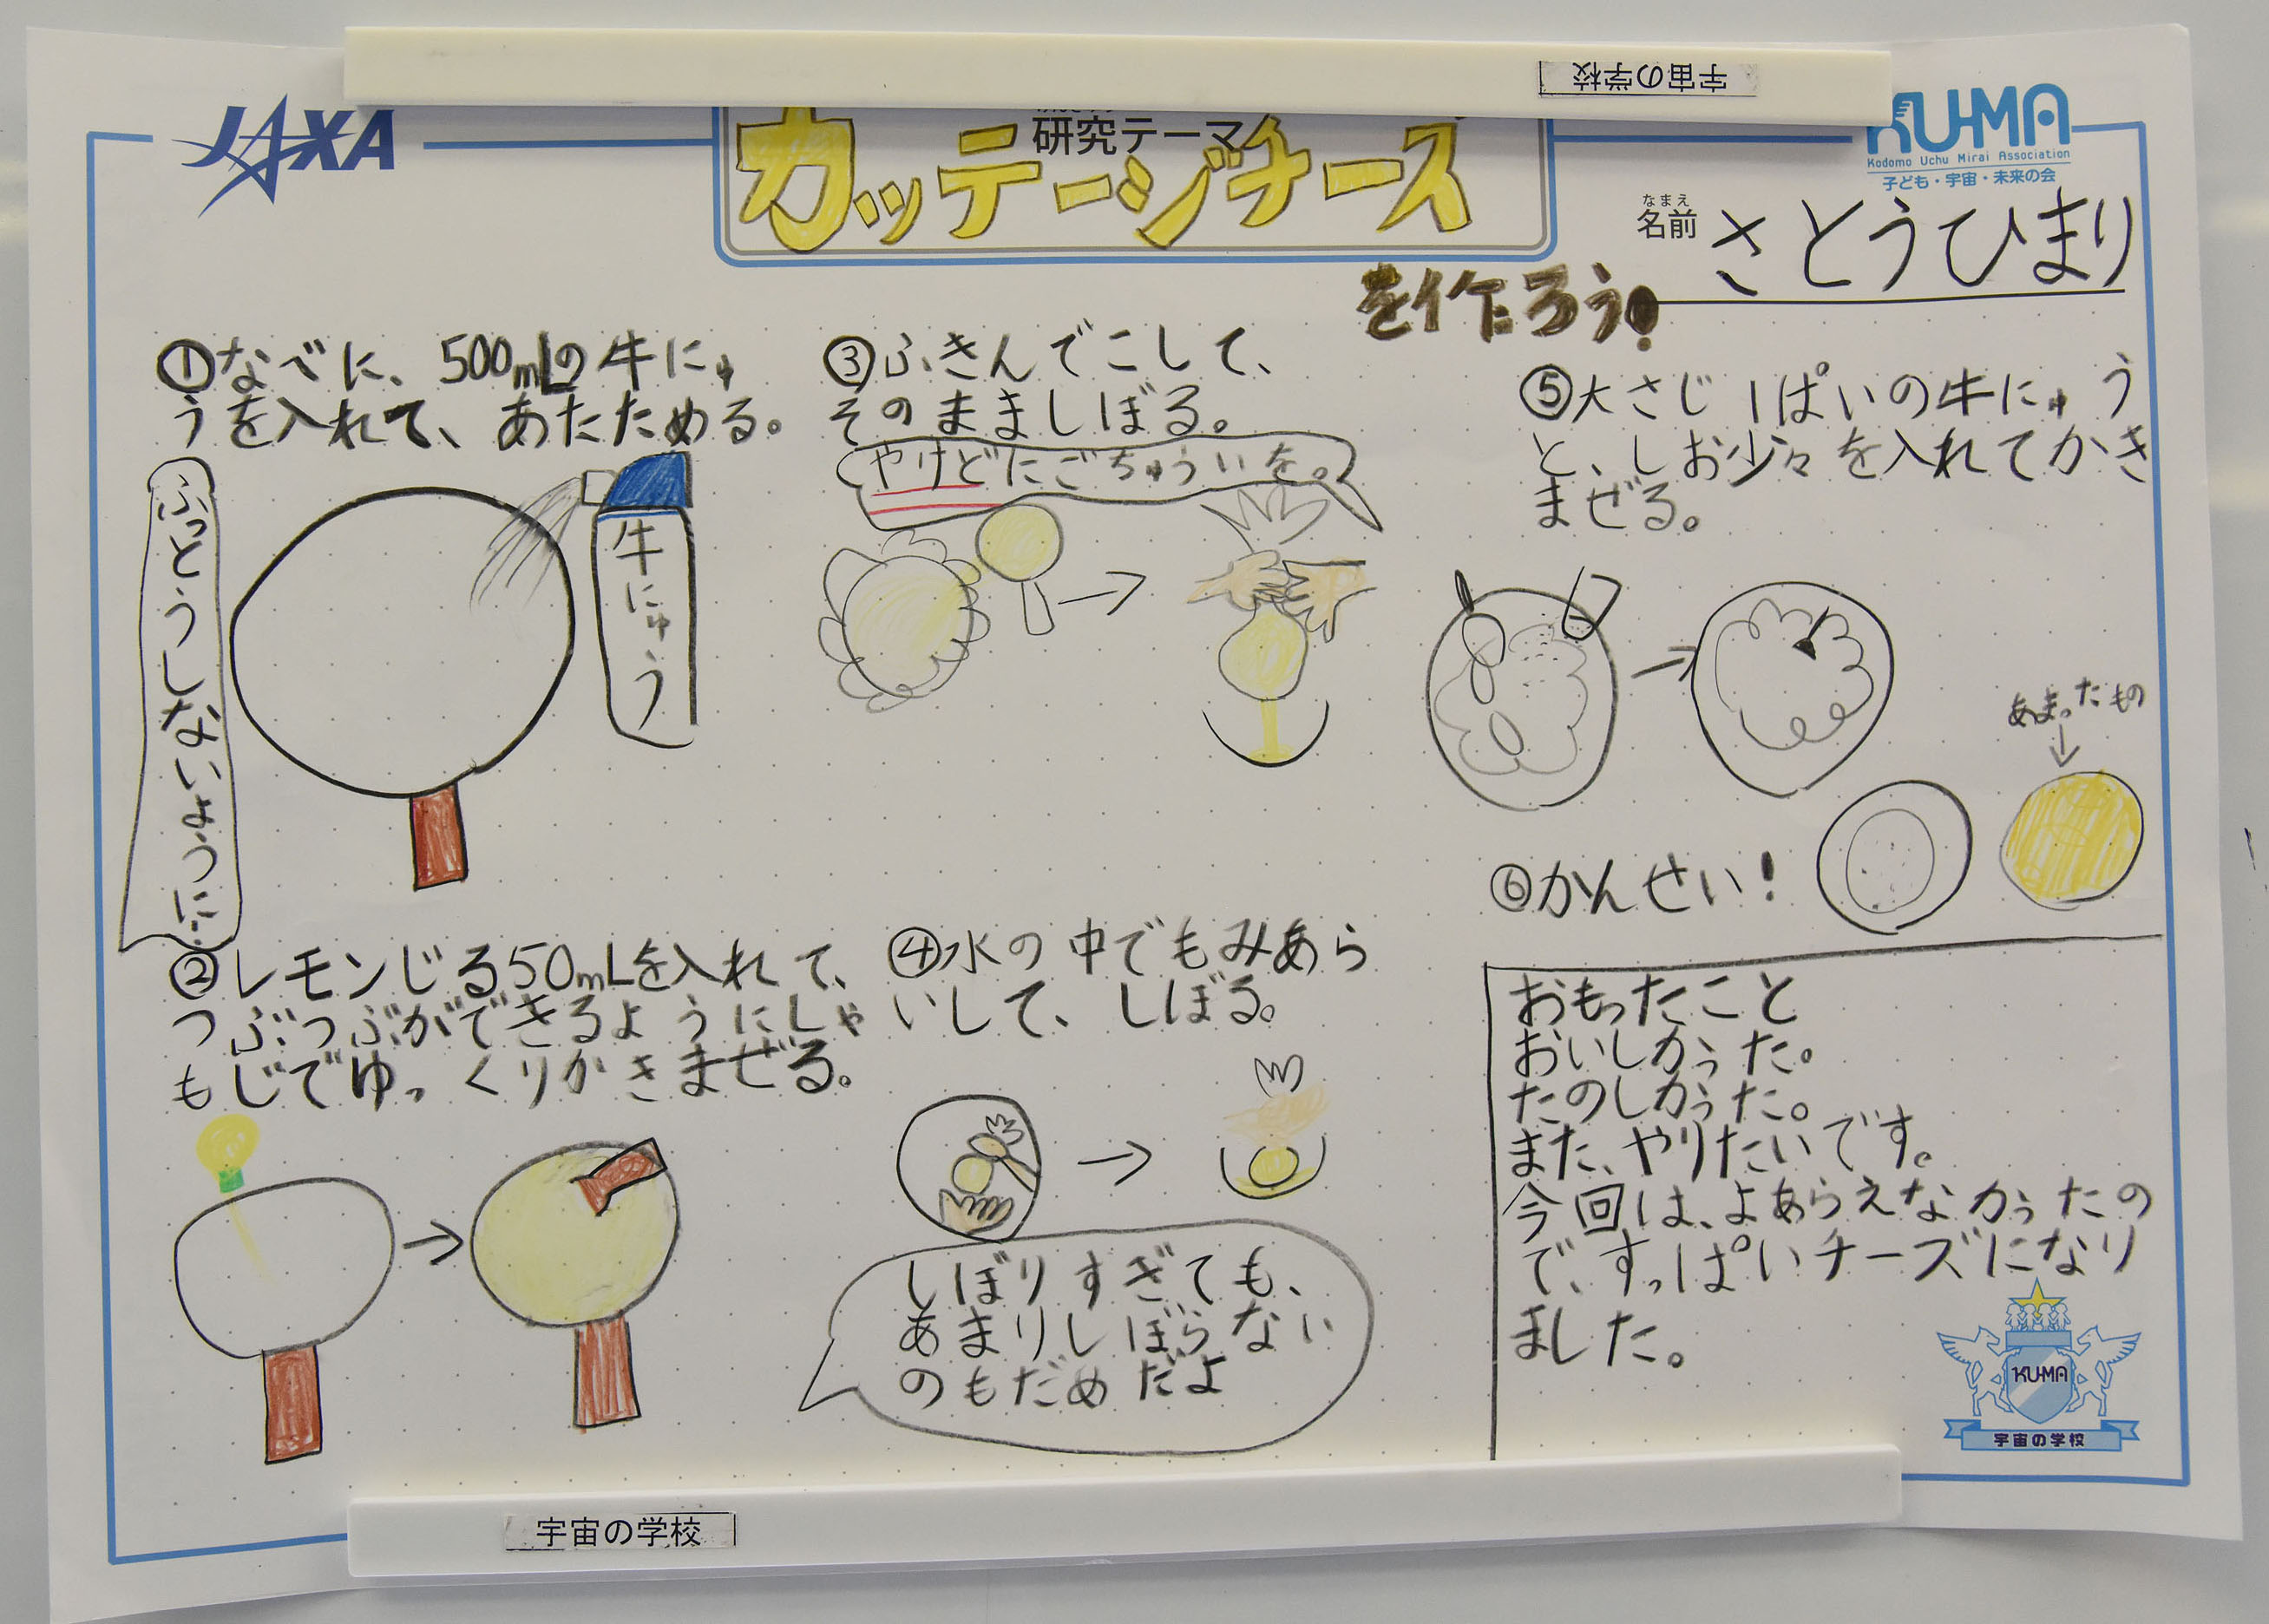 宇宙の学校
JAXA
研究テーマ
カッテージチーズ
を作ろう!
KU-MA
Kodomo Uchu Mirai Association
子ども・宇宙・未来の会
なまえ
名前 さとうひまり
①なべに、500mLの牛にゅ
うを入れて、あたためる。
ふっとうしないように
牛にゅう
②レモンじる50mLを入れて、
つぶつぶができるようにしゃ
もじでゆっくりかきまぜる。
③ふきんでこして、
そのまましぼる。
やけどにごちゅういを。
④水の中でもみあら
いして、しぼる。
しぼりすぎても、
あまりしぼらない
のもだめだよ
⑤大さじ1ぱいの牛にゅう
と、しお少々を入れてかき
まぜる。
あまったもの
⑥かんせい!
おもったこと
おいしかった。
たのしかった。
また、やりたいです。
今回は、よあらえなかったの
で、すっぱいチーズになり
ました。
KU-MA
宇宙の学校
宇宙の学校